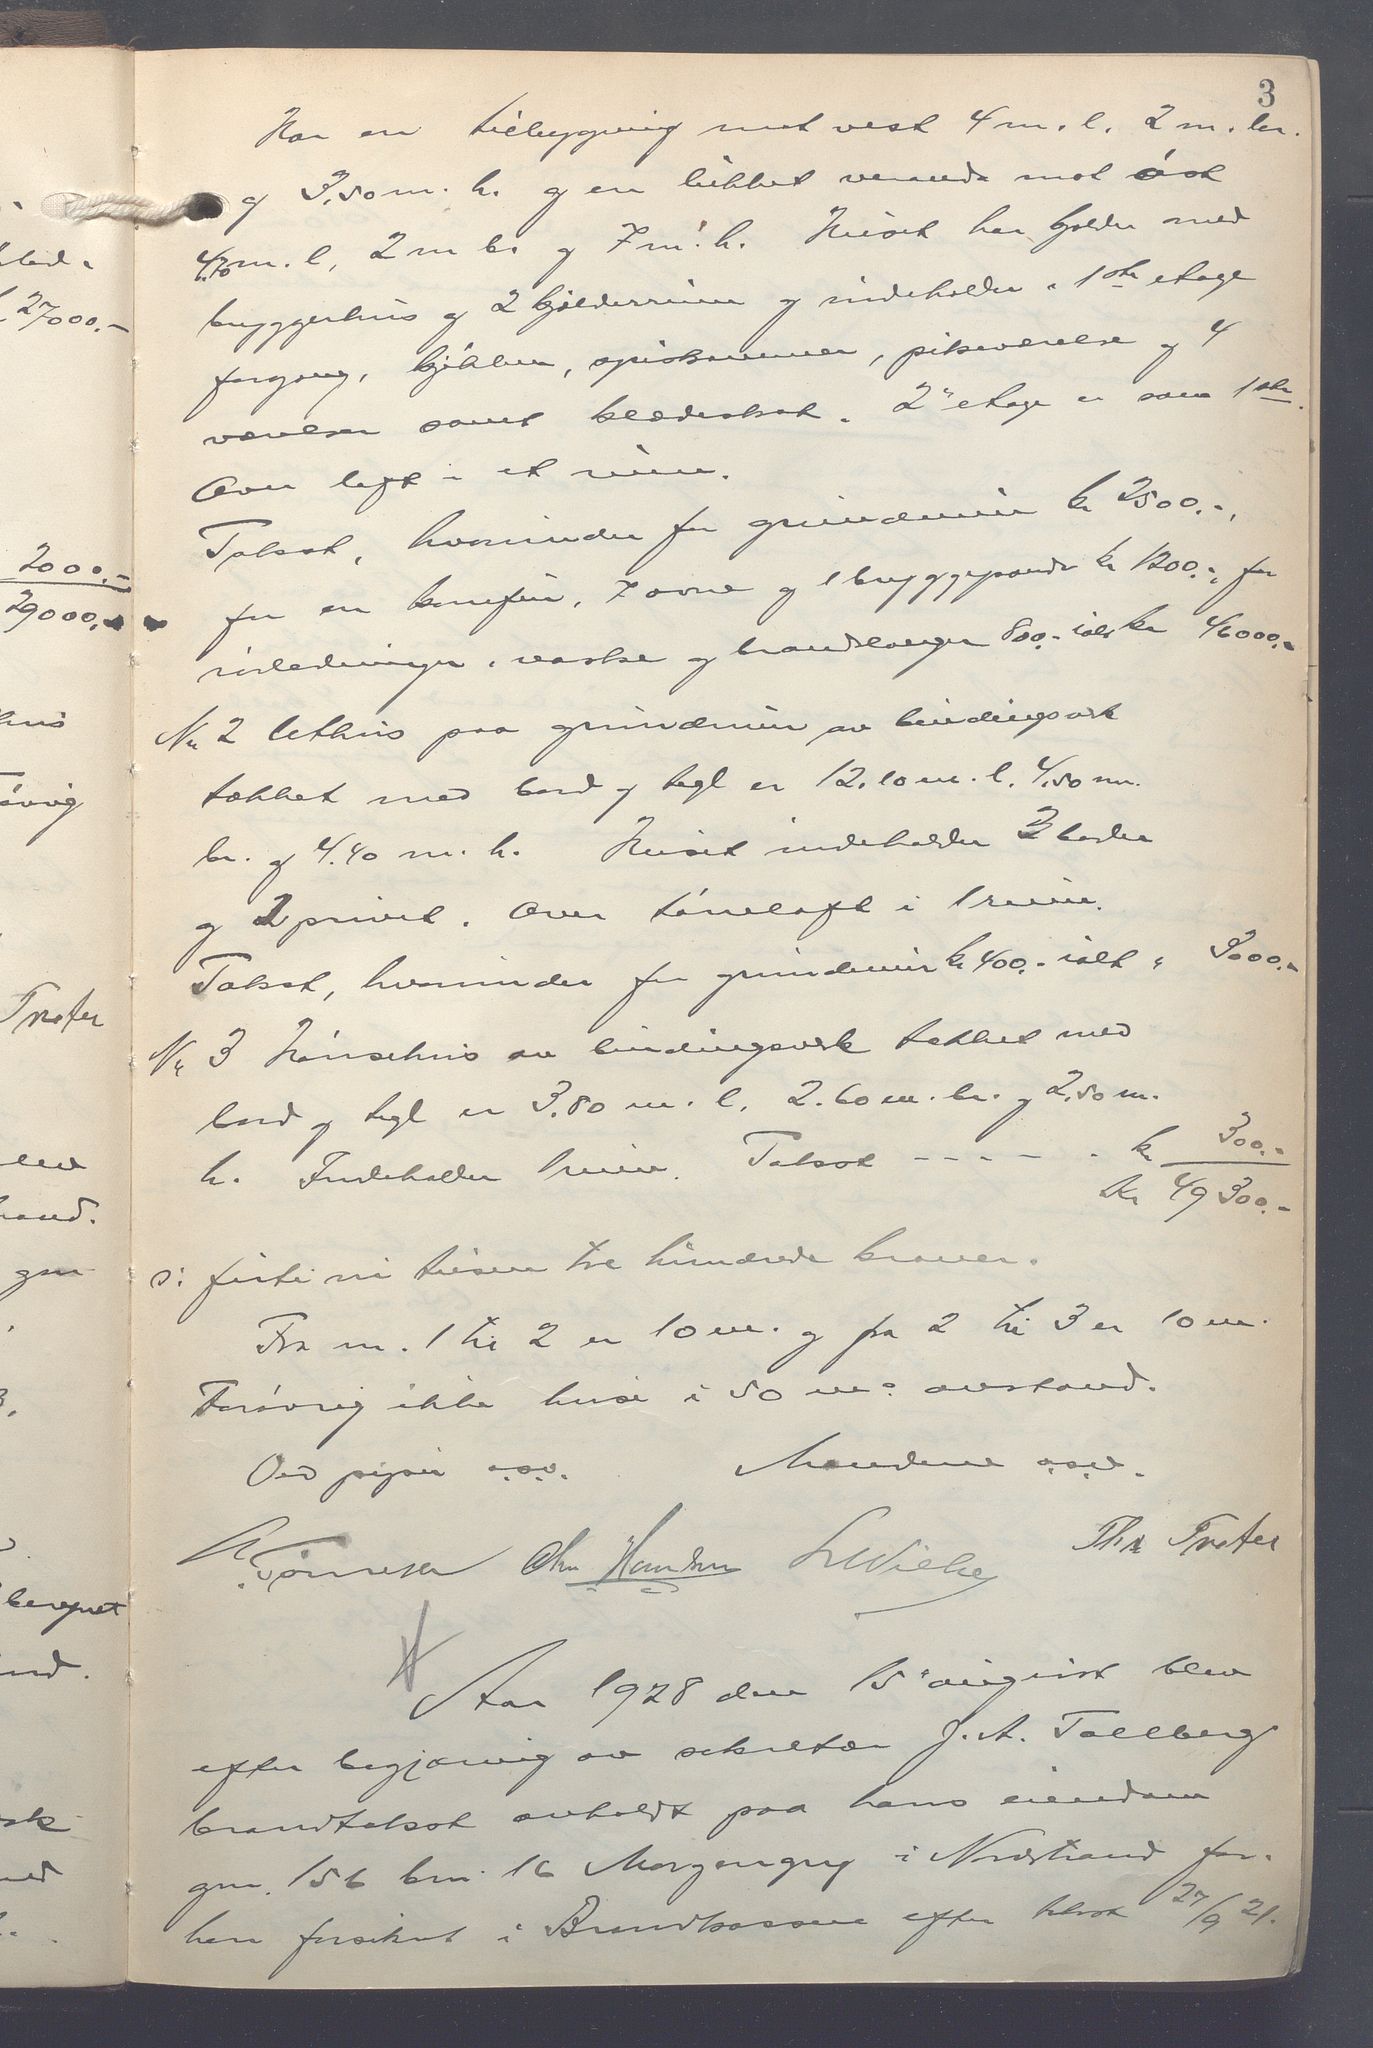 3
Har en tilbygning mot vest 4 m. l. 2 m. br.
og 3,50 m. h. og en lukket veranda mot øst
4,70 m. l, 2 m br og 7 m. h. Huset har kjelder med
bryggerhus og 2 kjelderrum og indeholder i 1ste etage
forgang, kjøkken, spiskammer, pikeværelse og 4
værelser samt klædeskot. 2" etage er som 1ste.
Over loft i et rum.
Takst, hvorunder for grundmur kr 2500.-,
for en komfur, 7 ovne og 1 bryggepande kr 1200.-, for
rørledninger, vaske og brandslanger 800.- ialt kr 46000.-
Nr 2 Uthus paa grundmur av bindingsverk
tækket med bord og tegl er 12,10 m. l. 4,50 m.
br. og 4.40 m. h. Huset indeholder 3 boder
og 2 privet. Over tørreloft i 1 rum.
Takst, hvorunder for grundmur kr 400.- ialt " 3000.-
Nr 3 Hønsehus av bindingsverk tækket med
bord og tegl er 3.80 m. l. 2.60 m. br. og 2,50 m.
h. Indeholder 1 rum. Takst - - - - - - kr 300.-
kr 49300.-
si firti ni tusen tre hundrede kroner.
Fra nr. 1 til 2 er 10 m. og fra 2 til 3 er 10 m.
Forøvrig ikke huse i 50 m: avstand.
Ved piper o.s.v. Mændene o.s.v.
Tønnesen Chr Knudsen Thr Træfer
Aar 1928 den 15" august blev
efter begjæring av sekretær J. A. Tallberg
brandtakst avholdt paa hans eiendom
gnr. 156 bnr 16 Morgengry i Nordstrand for-
hen forsikret i Brandkassen efter takst 27/9 21.
27000.-
2000.-
29000.-
Træfer